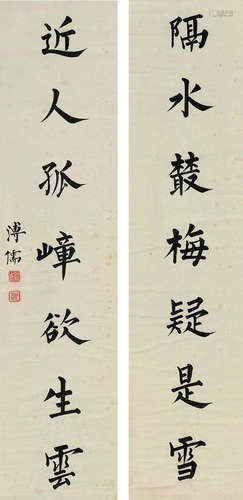 隔水叢梅疑是雪
近人孤嶂欲生雲
溥儒